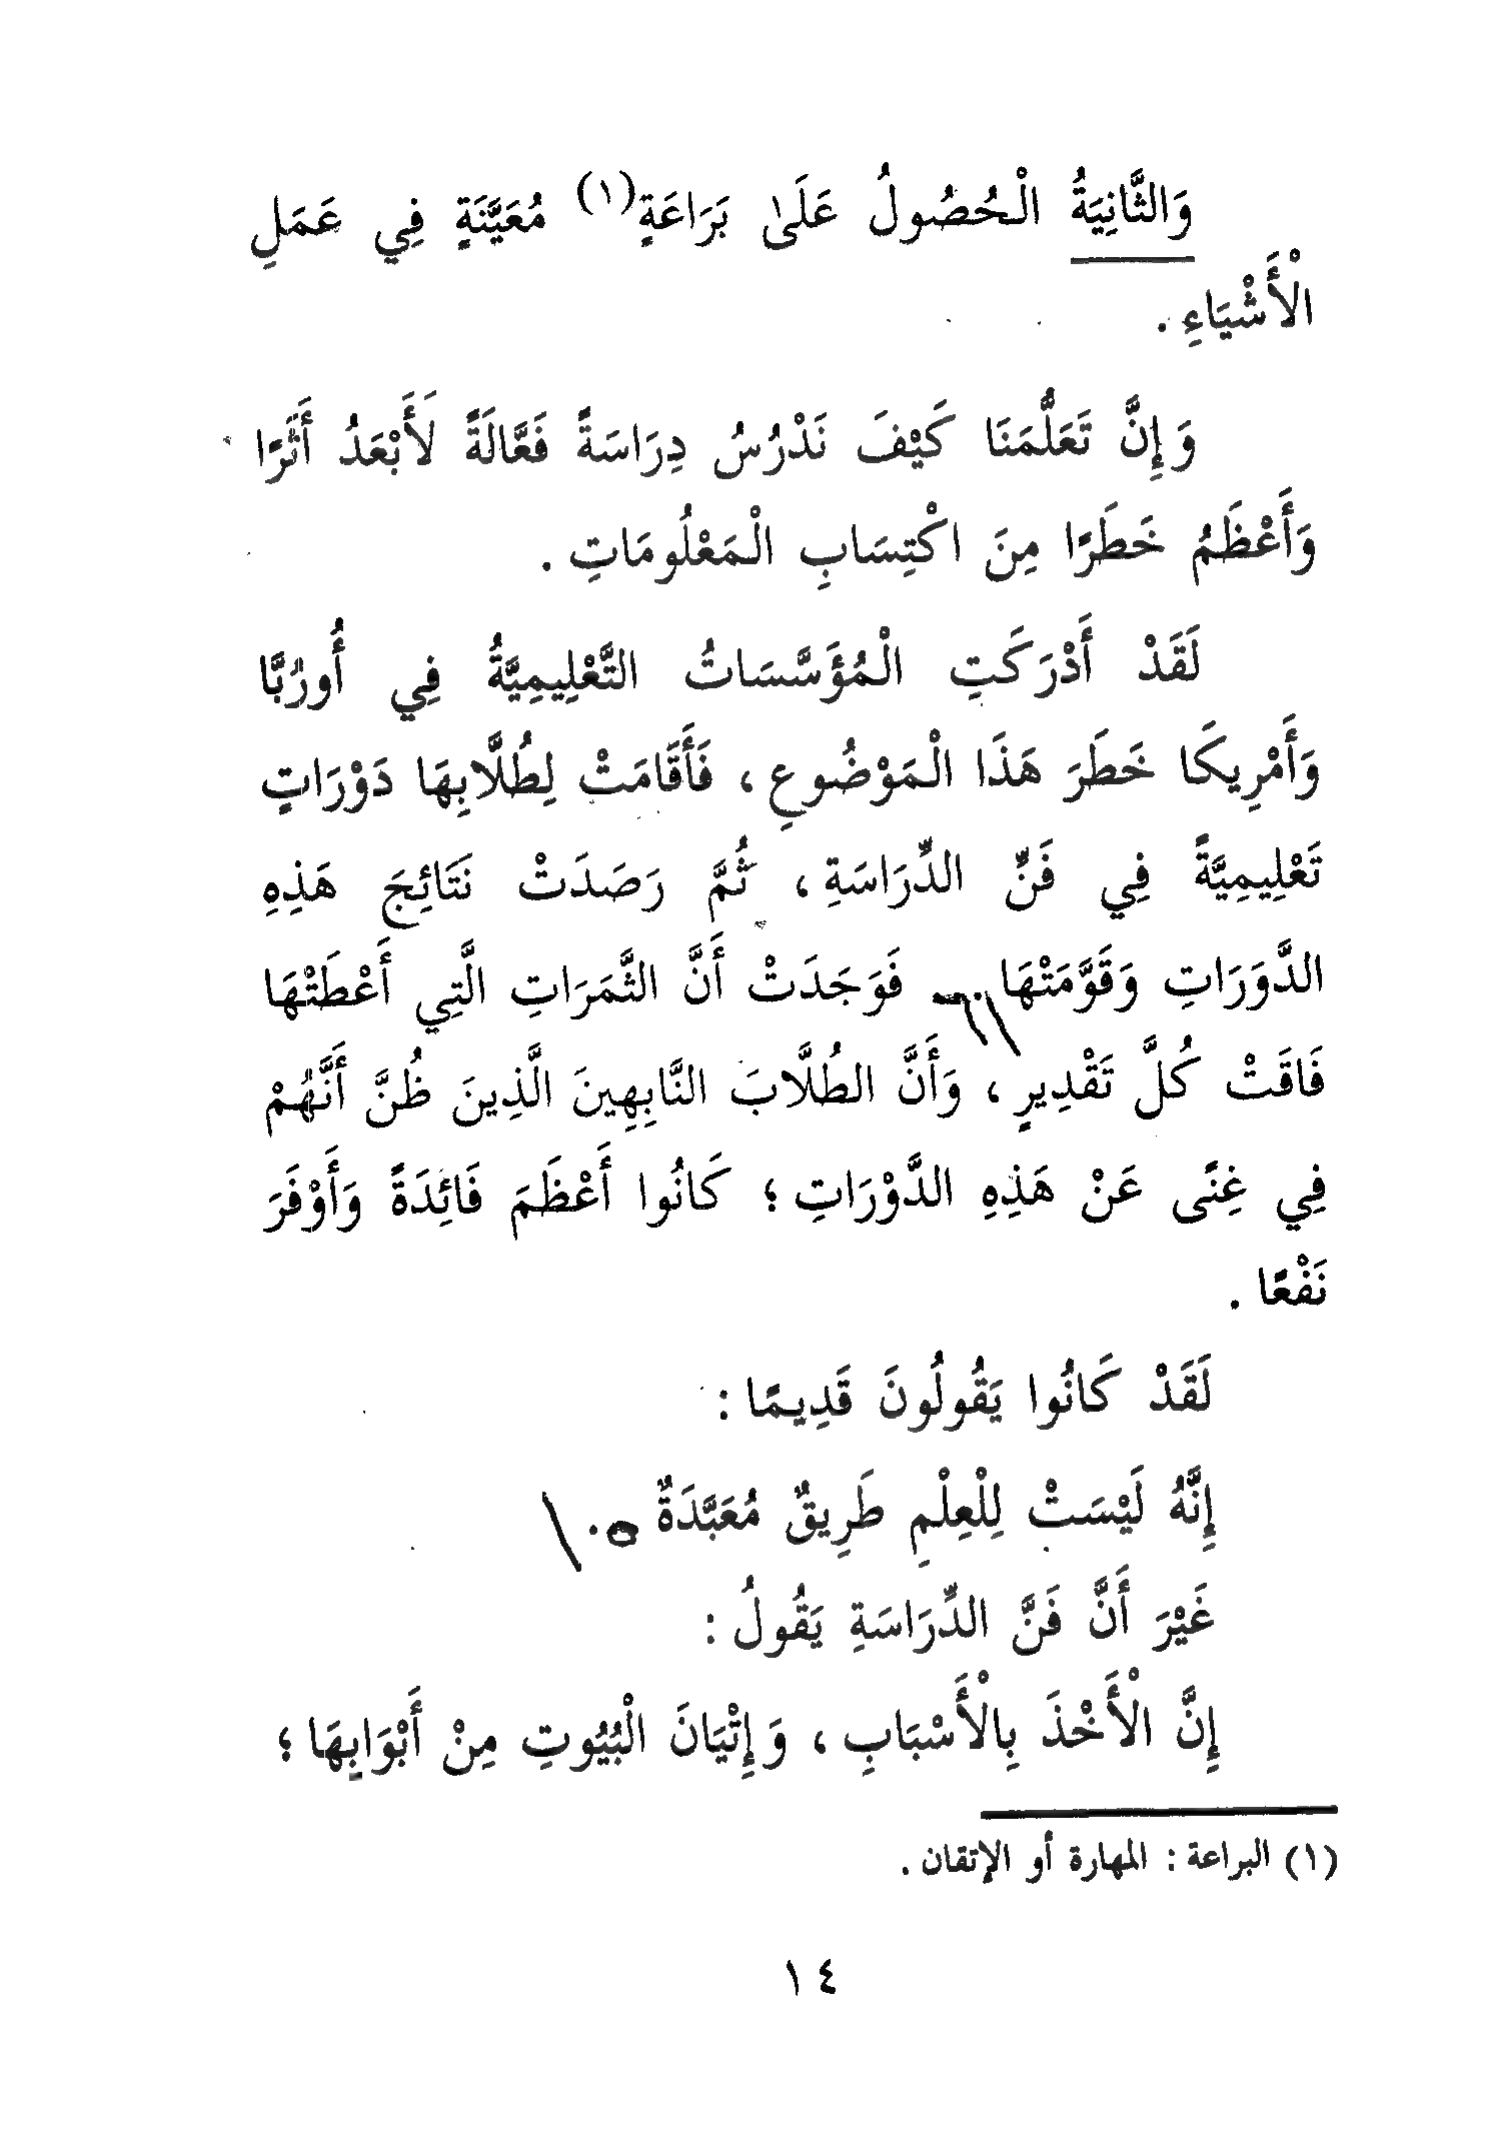 وَالثَّانِيَةُ الْحُصُولُ عَلَىٰ بَرَاعَةٍ(١) مُعَيَّنَةٍ فِي عَمَلِ
الْأَشْيَاءِ .
وَإِنَّ تَعَلُّمَنَا كَيْفَ نَدْرُسُ دِرَاسَةً فَعَّالَةً لَأَبْعَدُ أَثَرًا
وَأَعْظَمُ خَطَرًا مِنَ اكْتِسَابِ الْمَعْلُومَاتِ .
لَقَدْ أَدْرَكَتِ الْمُؤَسَّسَاتُ التَّعْلِيمِيَّةُ فِي أُورُبَّا
وَأَمْرِيكَا خَطَرَ هَذَا الْمَوْضُوعِ ، فَأَقَامَتْ لِطُلَّابِهَا دَوْرَاتٍ
تَعْلِيمِيَّةً فِي فَنِّ الدِّرَاسَةِ ، ثُمَّ رَصَدَتْ نَتَائِجَ هَذِهِ
الدَّوَرَاتِ وَقَوَّمَتْهَا فَوَجَدَتْ أَنَّ الثَّمَرَاتِ الَّتِي أَعْطَتْهَا
فَاقَتْ كُلَّ تَقْدِيرٍ ، وَأَنَّ الطُلَّابَ النَّابِهِينَ الَّذِينَ ظُنَّ أَنَّهُمْ
فِي غِنًى عَنْ هَذِهِ الدَّوْرَاتِ ؛ كَانُوا أَعْظَمَ فَائِدَةً وَأَوْفَرَ
نَفْعًا .
لَقَدْ كَانُوا يَقُولُونَ قَدِيمًا :
إِنَّهُ لَيْسَتْ لِلْعِلْمِ طَرِيقٌ مُعَبَّدَةٌ .
غَيْرَ أَنَّ فَنَّ الدِّرَاسَةِ يَقُولُ :
إِنَّ الْأَخْذَ بِالْأَسْبَابِ ، وَإِتْيَانَ الْبُيُوتِ مِنْ أَبْوَابِهَا ؛
(١) البراعة : المهارة أو الإتقان .
١٤